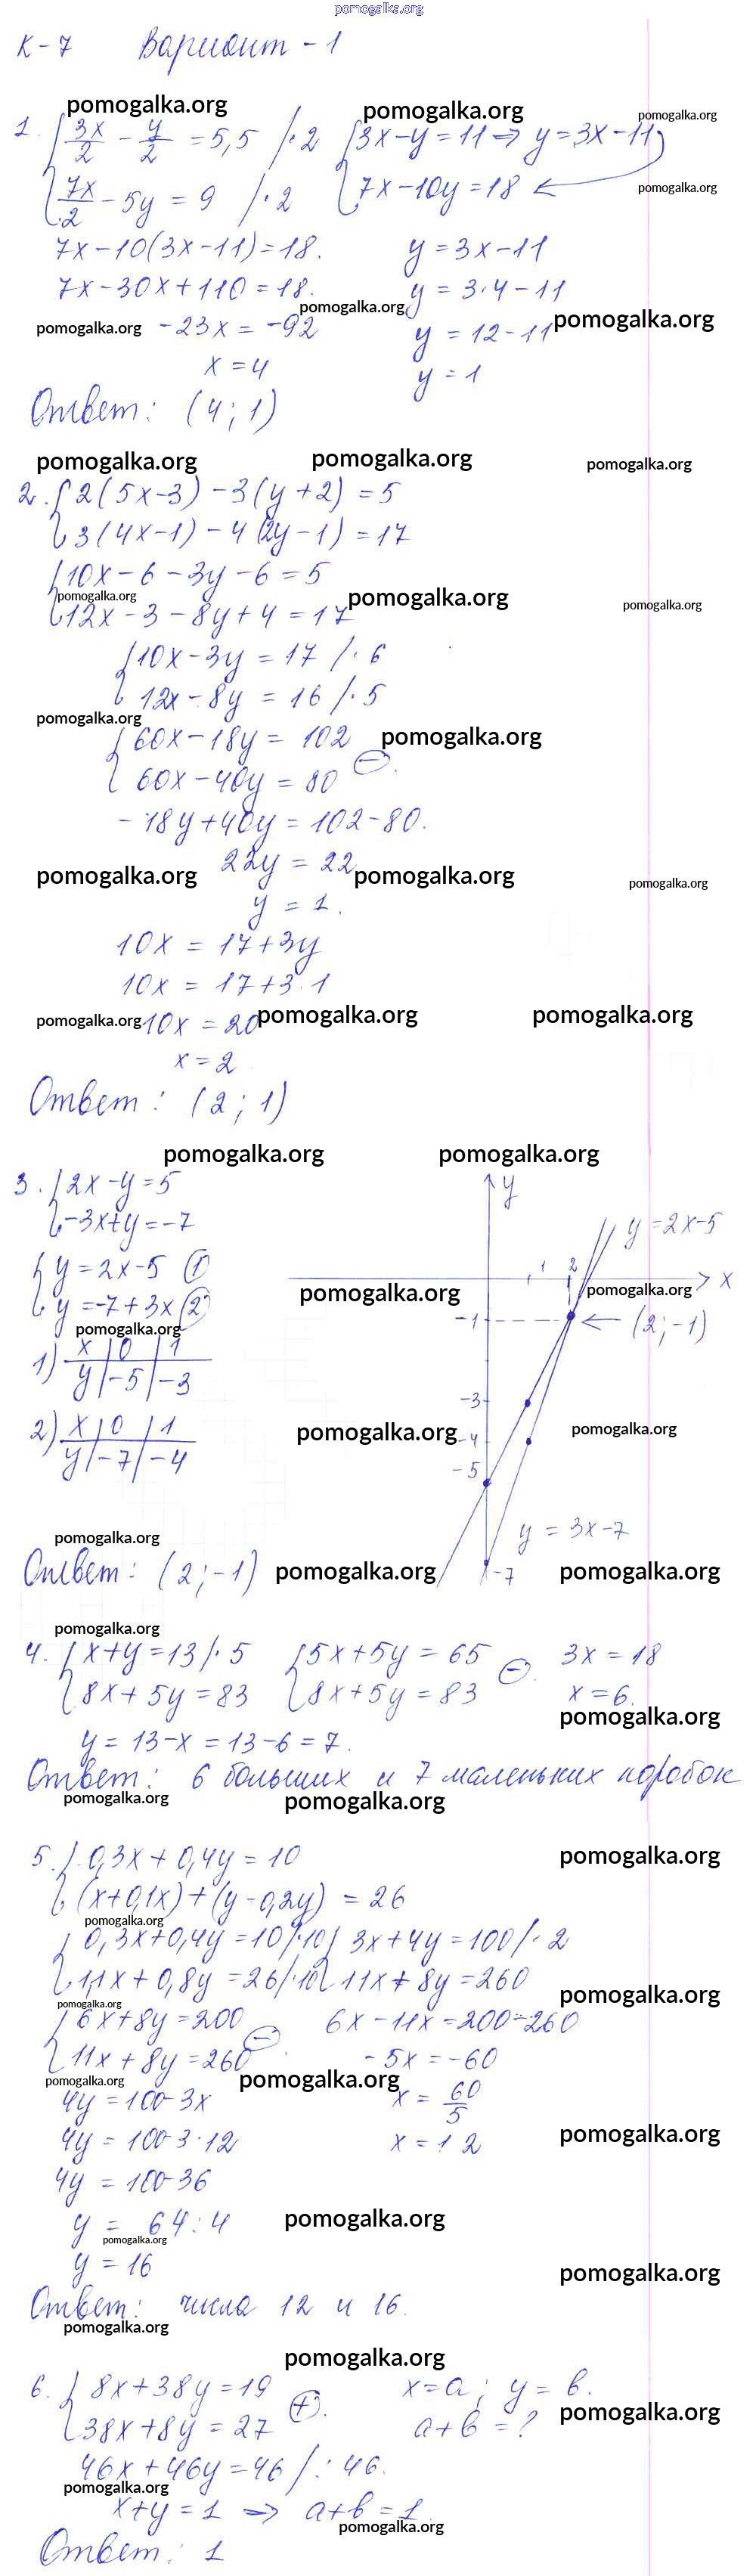 pomogalka.org
К-7 Вариант-1
pomogalka.org pomogalka.org pomogalka.org
1. { 3x/2 - y/2 = 5,5 /·2 { 3x-y=11 ⇒ y=3x-11
{ 7x/2 - 5y = 9 /·2 { 7x-10y=18 ← pomogalka.org
7x-10(3x-11)=18. y=3x-11
7x-30x+110=18. y=3·4-11
pomogalka.org
pomogalka.org -23x=-92 y=12-11 pomogalka.org
x=4 y=1
Ответ: (4;1)
pomogalka.org pomogalka.org pomogalka.org
2. { 2(5x-3)-3(y+2)=5
{ 3(4x-1)-4(2y-1)=17
{ 10x-6-3y-6=5
pomogalka.org pomogalka.org pomogalka.org
{ 12x-3-8y+4=17
{ 10x-3y=17 /·6
{ 12x-8y=16 /·5
pomogalka.org
{ 60x-18y=102 pomogalka.org
{ 60x-40y=80 ⊖.
-18y+40y=102-80.
22y=22
pomogalka.org pomogalka.org pomogalka.org
y=1.
10x=17+3y
10x=17+3·1
pomogalka.org 10x=20 pomogalka.org pomogalka.org
x=2
Ответ: (2;1)
pomogalka.org pomogalka.org
3. { 2x-y=5
{ -3x+y=-7
{ y=2x-5 ①
{ y=-7+3x ②
pomogalka.org
1) x | 0 | 1
y | -5 | -3
2) x | 0 | 1
y | -7 | -4
y
y=2x-5
1 2 x
pomogalka.org pomogalka.org
-1 ← (2;-1)
-3
pomogalka.org -4 pomogalka.org
-5
y=3x-7
-7
pomogalka.org
Ответ: (2;-1) pomogalka.org pomogalka.org
pomogalka.org
4. { x+y=13 /·5 { 5x+5y=65 ⊖. 3x=18
{ 8x+5y=83 { 8x+5y=83 x=6.
pomogalka.org
y=13-x=13-6=7.
Ответ: 6 больших и 7 маленьких коробок
pomogalka.org pomogalka.org
5. { 0,3x+0,4y=10 pomogalka.org
{ (x+0,1x)+(y-0,2y)=26
pomogalka.org
{ 0,3x+0,4y=10 /·10 { 3x+4y=100 /·2
{ 1,1x+0,8y=26 /·10 { 11x+8y=260
pomogalka.org pomogalka.org
{ 6x+8y=200 ⊖. 6x-11x=200-260
{ 11x+8y=260 -5x=-60
pomogalka.org pomogalka.org
4y=100-3x x=60/5
4y=100-3·12 x=12 pomogalka.org
4y=100-36
y=64:4 pomogalka.org
pomogalka.org
y=16 pomogalka.org
Ответ: числа 12 и 16.
pomogalka.org
pomogalka.org
6. { 8x+38y=19 ⊕. x=a; y=b.
{ 38x+8y=27 a+b=? pomogalka.org
46x+46y=46 /:46.
pomogalka.org
x+y=1 ⇒ a+b=1.
pomogalka.org
Ответ: 1